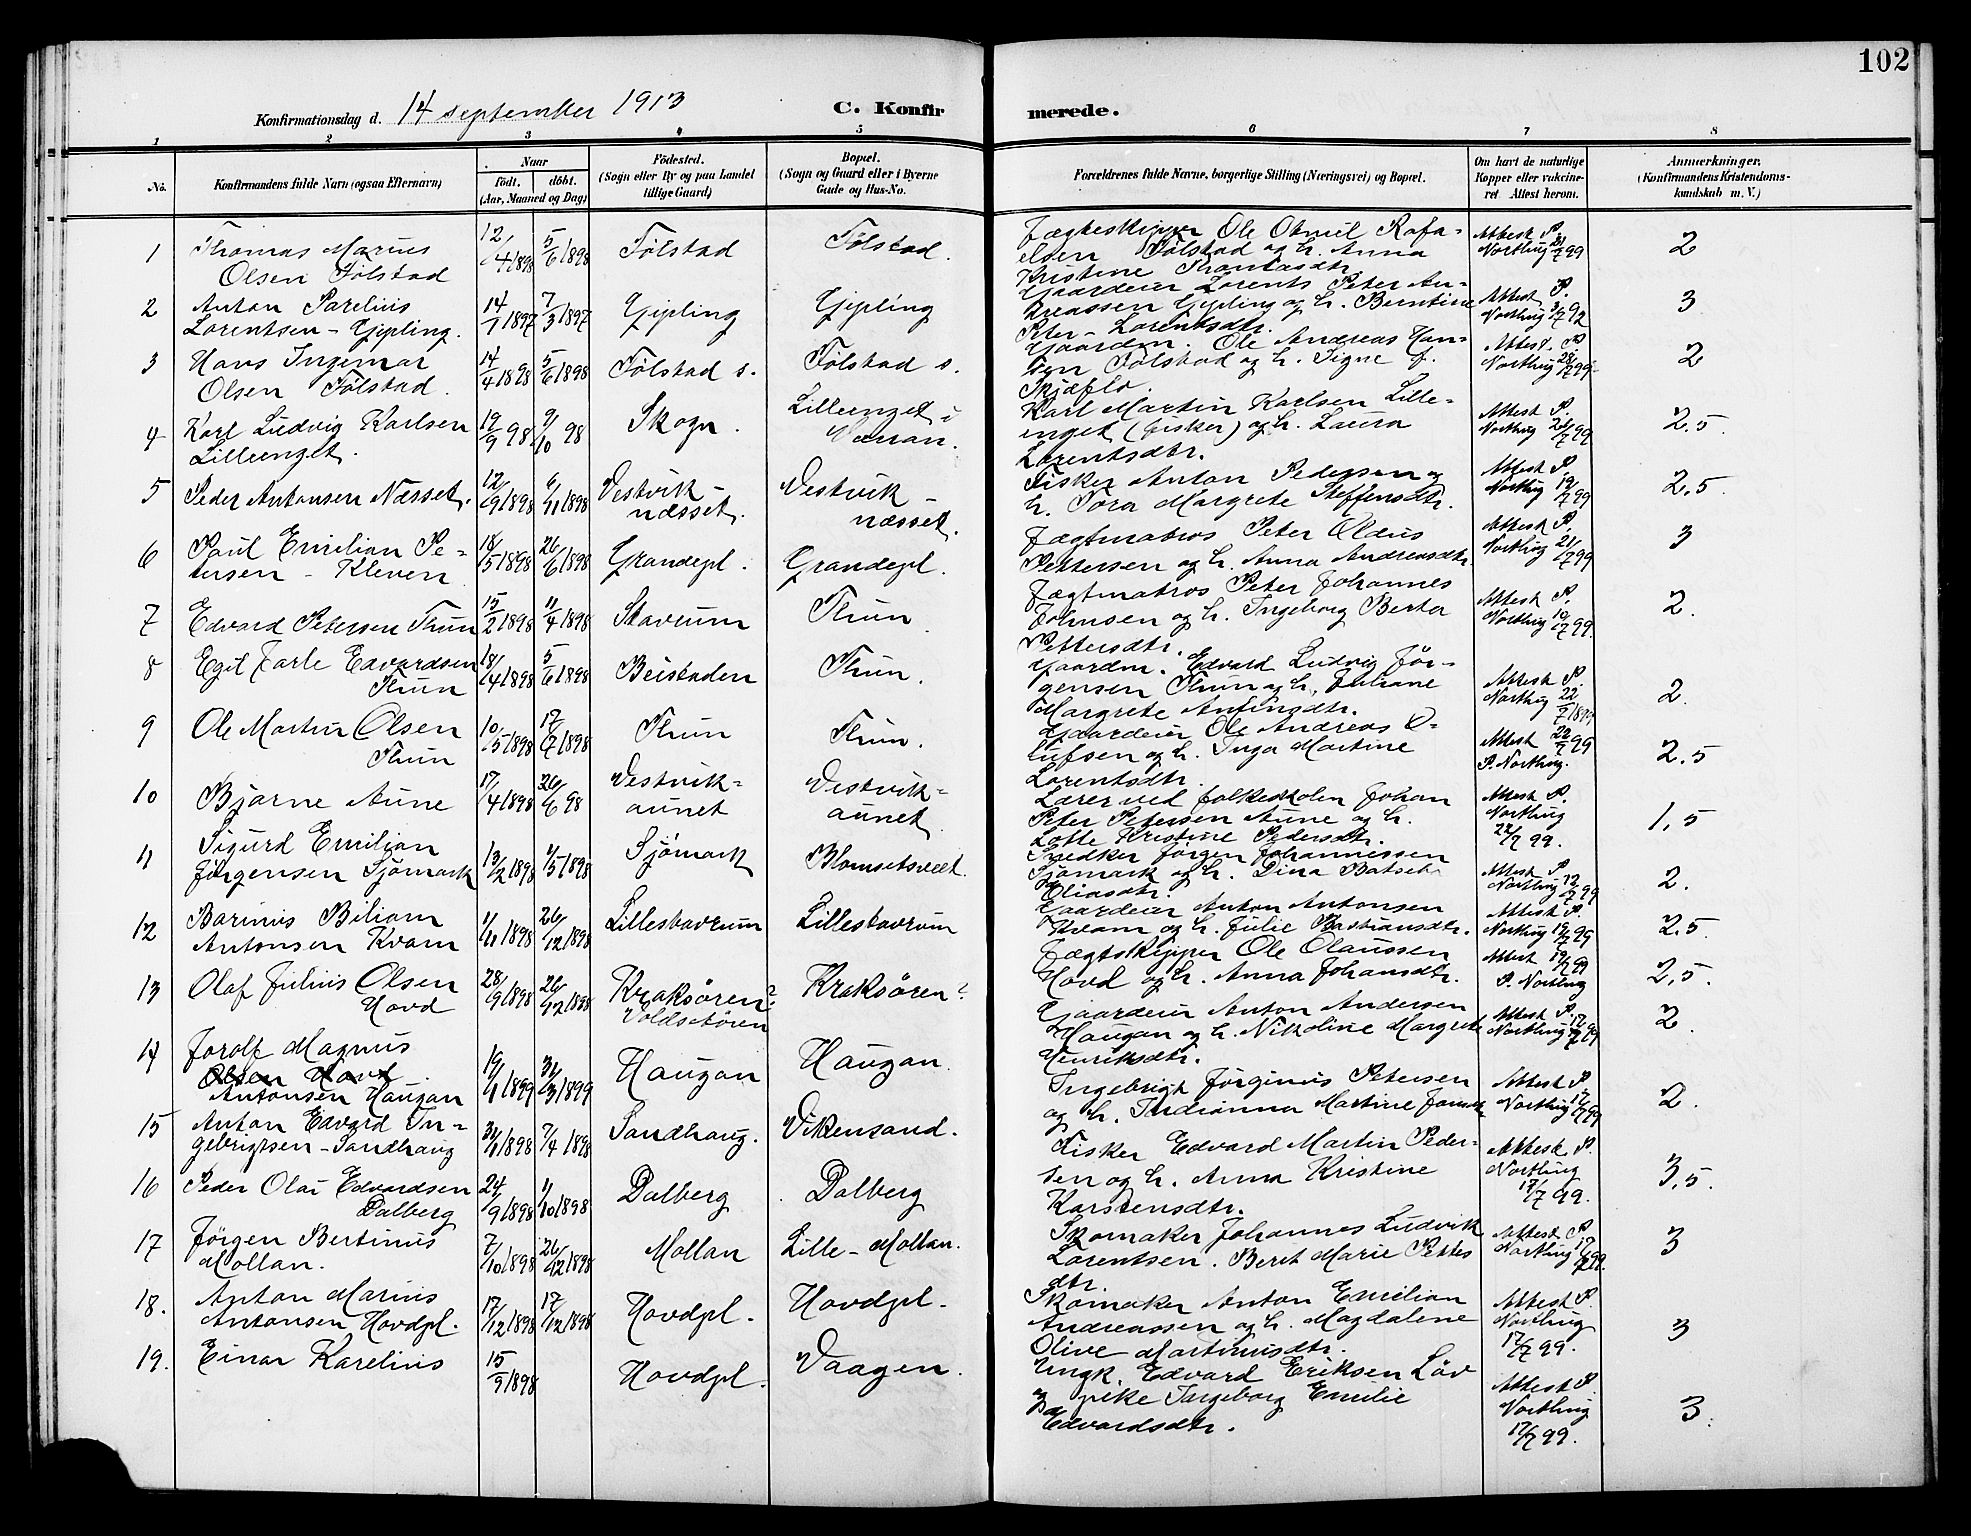 102
Konfirmationsdag d. 14 september 1913 C. Konfir merede.
1 2 3 4 5 6 7 8
No. Konfirmandens fulde Navn (ogsaa Efternavn) Naar födt. döbt. (Aar, Maaned og Dag) Födested. (Sogn eller By og paa Landet tillige Gaard) Bopæl. (Sogn og Gaard eller i Byerne Gade og Hus-No. Forældrenes fulde Navne, borgerlige Stilling (Næringsvei) og Bopæl. Om havt de naturlige Kopper eller vakcineret Attest herom. Anmærkninger. (Konfirmandens Kristendomskundskab m. V.)
1 Thomas Marius Olsen Følstad 12/4 1898 5/6 1898 Følstad Følstad. Jægteskipper Ole Rafaelsen Følstad og h. Anna Kristine Attest P. Northug 99 2
2 Anton Parelius Lorentsen - Gipling. 14/1 1897 7/3 1897 Gipling Gipling Gaardeier Lorents Peter Andreassen Gipling og h. Berntine Peter - Lorentsdtr. Attest P. Northug 3
3 Hans Ingemar Olsen Følstad. 14/4 1898 5/6 1898 Følstad s. Følstad s. Gaardm. Ole Andreas Hansen Følstad og h. Signe f. Skjeflo. Attest. P Northug 28/7 99 2
4 Karl Ludvig Karlsen Lilleenget. 19/9 98 9/10 98 Skogn. Lilleenget i Karl Martin Karlsen Lilleenget (fisker) og h. Laura Lorentsdtr. Attest P. Northug 99 2.5.
5 Peder Antonsen Næsset. 12/9 1898 6/11 1898 Vestviknæsset. Vestvik - næsset. Fisker Anton Pedersen og h. Tora Margrete Steffensdtr. Attest P. Northug 19/7 99 2,5.
6 Paul Emilian Petersen - Kleven 18/5 1898 26/6 1898 Grandepl. Grandepl. Jægtmatros Peter Oldus Pettersen og h. Anna Andreasdtr. Attest P. Northug 21/7 99 3
7 Edvard Petersen Thun 15/2 1898 11/4 1898 Stavrum Thun. Jægtmatros Peter Johannes Johnsen og h. Ingeborg Berta Pettersdtr. Attest P. Northug 19/7 99. 2.
8 Egil Jarle Edvardsen Thun 18/4 1898 5/6 1898 Beistaden Thun. Gaardm. Edvard Ludvig Jörgensen Thun og h. Juliane Margrete Antonsdtr. Attest P. Northug 22/7 1899 2.
9 Ole Martin Olsen Thun 10/5 1898 17/7 1898 Thun Thun. Gaardeier Ole Andreas Olufsen og h. Inga Martine Lorentsdtr. Attest 22/7 99 P. Northug. 2.5
10 Bjarne Aune 17/4 1898 26/6 98 Vestvik= aunet Vestvik= aunet. Lærer ved folkeskolen Johan Peter Petersen Aune og h. Lotte Kristine Pedersdtr. Attest P. Northug 22/7 99. 1,5
11 Sigurd Emilian Jörgensen Sjömark 13/2 1898 1/5 1898 Sjömark Blomsetsvedt. Snedker Jörgen Johannessen Sjömark og h. Dina Batseba Eliasdtr. Attest P. Northug 12/7 99 2.
12 Barinus Biliam Antonsen Kvam 1/11 1898 26/12 1898 Lillestavrum Lillestavrum Gaardeier Anton Antonsen Kvam og h. Julie Bastiansdtr. Attest P. Northug 19/7 99 2,5.
13 Olaf Julius Olsen Hovd 28/9 1898 26/12 1898 Kraksören? Kraksören? Jægtskipper Ole Olaussen Hovd og h. Anna Johansdtr. Attest 19/7 99 P. Northug 2,5.
14 Jorolf Magnus Olsen Hovd Antonsen Haugan 19/1 1899 31/3 1899 Haugan Haugan. Gaardeier Anton Andersen Haugan og h. Nikoline Margrete Henriksdtr. Attest P. Northug 17/7 99 2.
15 Anton Edvard Ingebrigtsen - Sandhaug 31/1 1898 7/4 1898 Sandhaug. Vikensand. Ingebrigt Jörginus Petersen og h. Indianna Martine Attest P. Northug 17/7 99 2.
16 Peder Olai Edvardsen Dalberg 24/9 1898 11/10 1898 Dalberg Dalberg Fisker Edvard Martin Pedersen og h. Anna Kristine Karstensdtr. Attest P. Northug 17/7 99. 3,5.
17 Jörgen Bertinus Mollan. 7/10 1898 26/12 1898 Mollan Lille - Mollan. Skomaker Johannes Ludvik Lorentsen. Berit Marie Pettersdtr. Attest P Northug 17/7 99. 3
18. Anton Marius Antonsen Hovdpl. 17/12 1898 17/12 1898 Hovdpl. Hovdpl. Skomaker Anton Emilian Andreassen og h. Magdalene Olive Martinusdtr. Attest P. Northug 17/7 99. 3
19. Einar Karelius 15/9 1898 Hovdpl. Vaagen. Ungk. Edvard Eriksen Löv pike Ingeborg Emilie Edvardsdtr. Attest P. Northug 17/7 99. 3.